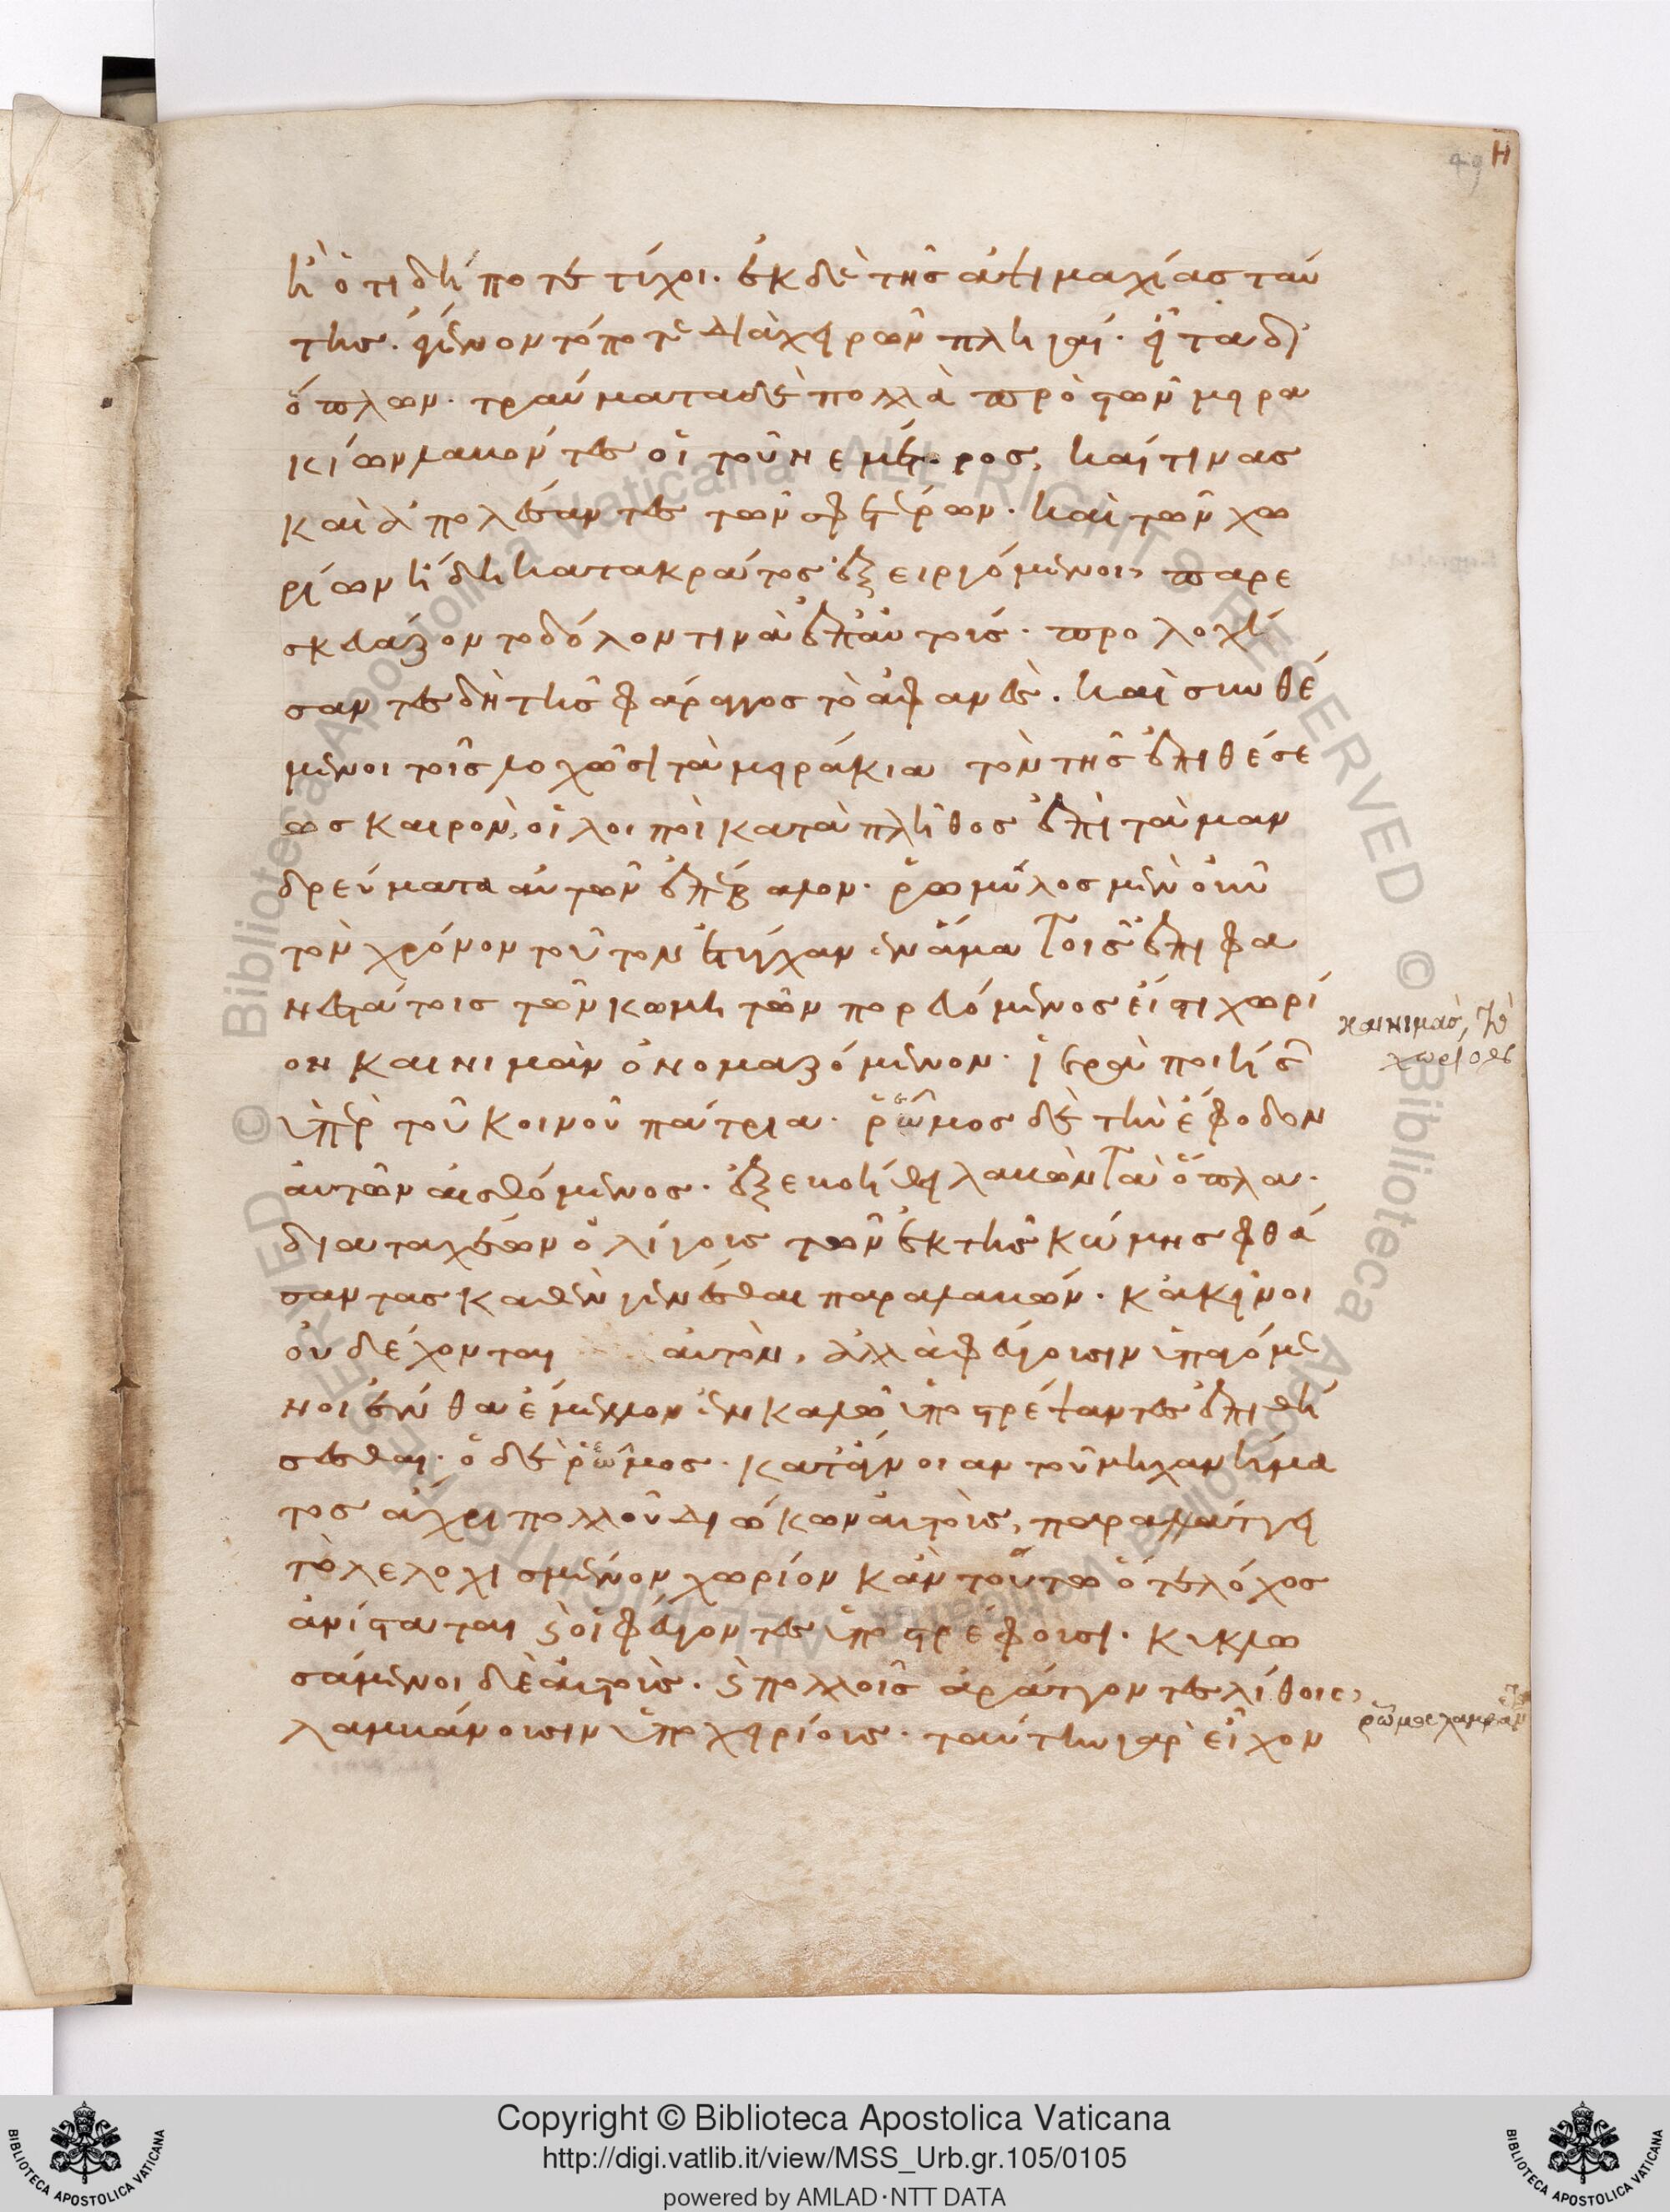 49 Η
ἢ ὁτιδήποτε τύχοι. ἐκ δὲ τῆς ἁψιμαχίας ταύ
της. ἐγίνοντό ποτε διὰ χειρῶν πληγαί. εἶτα δι'
ὅπλων. τραύματα δὲ πολλὰ πρὸς τῶν μειρα
κίων λαβόντες οἱ τοῦ νεμέτορος, καί τινας
καὶ ἀπολέσαντες τῶν σφετέρων. καὶ τῶν χω
ρίων ἤδη κατακράτος ἐξειργόμενοι, παρε
σκεύαζον τὸ δόλον τινὰ ἐπ' αὐτούς. προλοχί
σαντες δὴ τῆς φάραγγος τὸ ἀφανὲς. καὶ συνθέ
μενοι τοῖς λοχῶσι τὰ μειράκια τὸν τῆς ἐπιθέσε
ως καιρὸν, οἱ λοιποὶ κατὰ πλῆθος ἐπὶ τὰ μαν
δρεύματα αὐτῶν ἐπέβαλον. ῥωμύλος μὲν οὖν
τὸν χρόνον τοῦτον ἐτύγχανεν ἅμα τοῖς ἐπιφα
νεστάτοις τῶν κωμητῶν πορευόμενος εἴς τι χωρί
ον καινιμὰν ὀνομαζόμενον. ἱερὰ ποιήσ
ὑπὲρ τοῦ κοινοῦ πάτρια. ῥῶμος δὲ τὴν ἔφοδον
αὐτῶν αἰσθόμενος. ἐξεβοήθει λαβὼν τὰ ὅπλα.
διαταχέων ὀλίγους τῶν ἐκ τῆς κώμης φθά
σαντας καθὲν γενέσθαι παραλαβών. κἀκεῖνοι
οὐ δέχονται αὐτὸν, ἀλλὰ φεύγουσιν ὑπαγόμε
νοι ἔνθα ἔμελλον ἐν καλῷ ὑποστρέψαντες ἐπιθή
σεσθαι. ὁ δὲ ῥῶμος. κατ' ἄγνοιαν τοῦ μηχανήμα
τος ἄχρι πολλοῦ διώκων αὐτοὺς, παραλλάττει
τὸ λελοχισμένον χωρίον κἀν τούτω ὅ τε λόχος
ἀνίσταται ϗ οἱ φεύγοντες ὑποστρέφουσι. κυκλω
σάμενοι δὲ αὐτοὺς. ϗ πολλοῖς ἀράττοντες λίθοις,
λαμβάνουσιν ὑποχειρίους. ταύτην γὰρ εἶχον
καινιμὰσ,